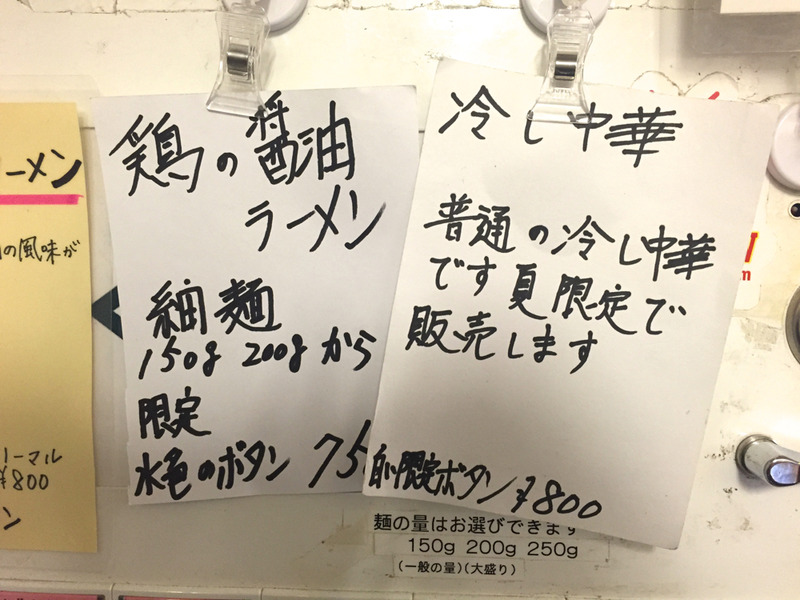 ーメン
の風味が
リーマル
¥800
ン
鶏の醤油
ラーメン
細麺
150g 200g から
限定
水色のボタン 75
冷し中華
普通の冷し中華
です夏限定で
販売します
白い限定ボタン ¥800
麺の量はお選びできます
150g 200g 250g
(一般の量)(大盛り)